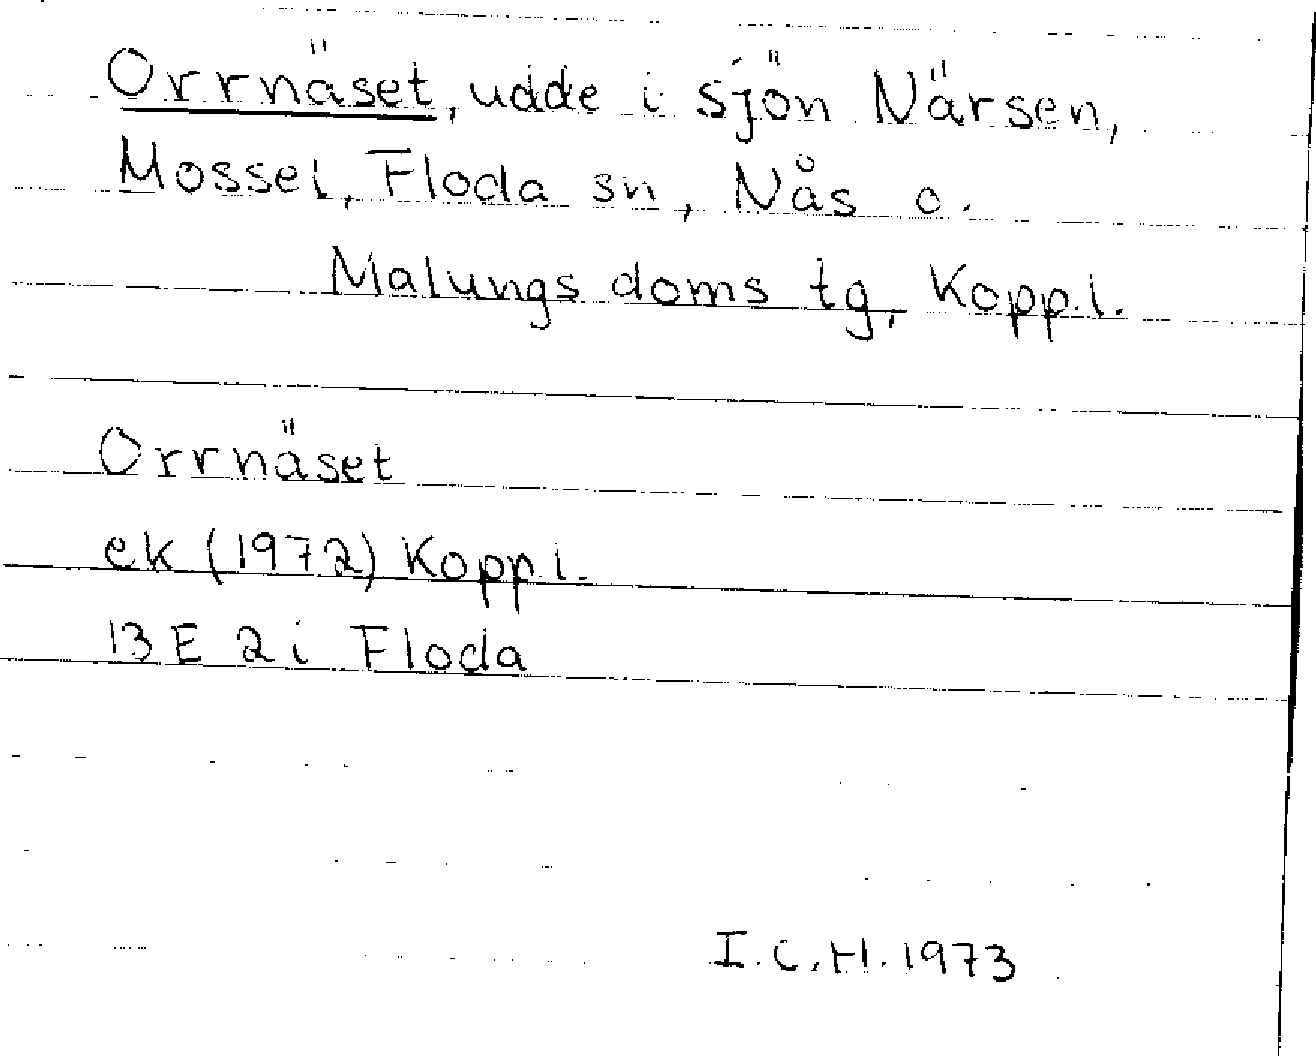 Orrnäset, udde i sjön Närsen,
Mossel, Floda sn, Nås o.
Malungs doms tg, Kopp.l.
Orrnäset
ek (1972) Kopp l.
13 E 2 i Floda
I.C.H. 1973